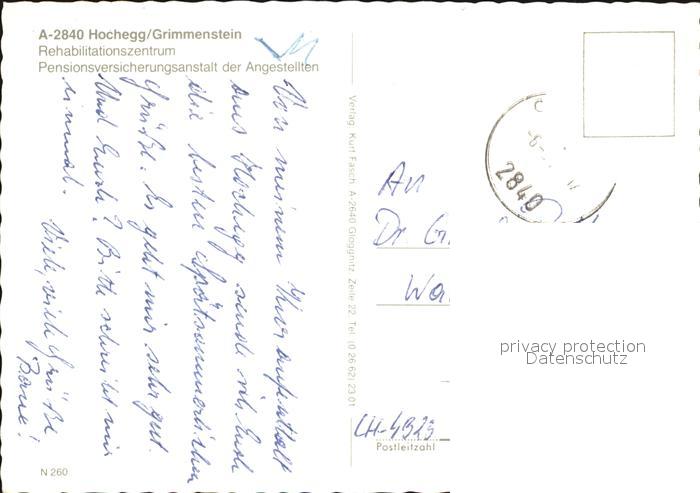 A-2840 Hochegg/Grimmenstein
Rehabilitationszentrum
Pensionsversicherungsanstalt der Angestellten
Von meinem Kuraufenthalt
aus Hochegg sende ich Euch
die besten spätsommerlichen
Grüße. Es geht mir sehr gut.
Und Euch? Bitte schreibt mir
einmal. Viele, viele Grüße
N 260
Verlag Kurt Fasch, A-2640 Gloggnitz, Zeile 22, Tel. (0 26 62) 23 01
2840
An
Dr
CH-4323
Postleitzahl
privacy protection
Datenschutz